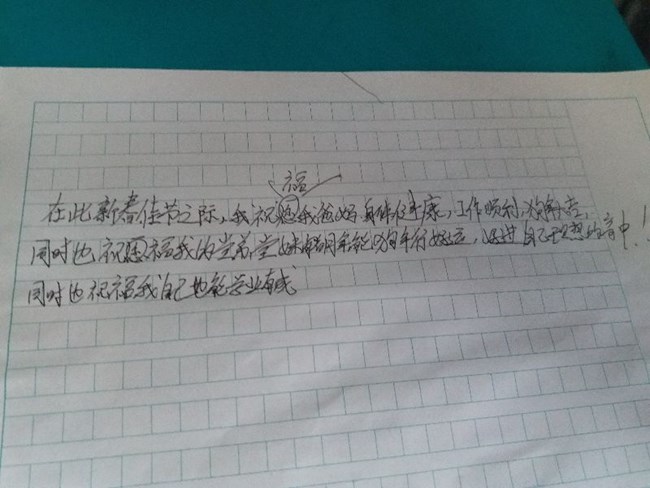 福
在此新春佳节之际，我祝愿我爸妈身体健康，工作顺利，狗年旺旺，
同时也祝愿福我的堂弟，堂妹能狗年行好运，好进自己理想的高中！
同时也祝福我自己也能学业有成